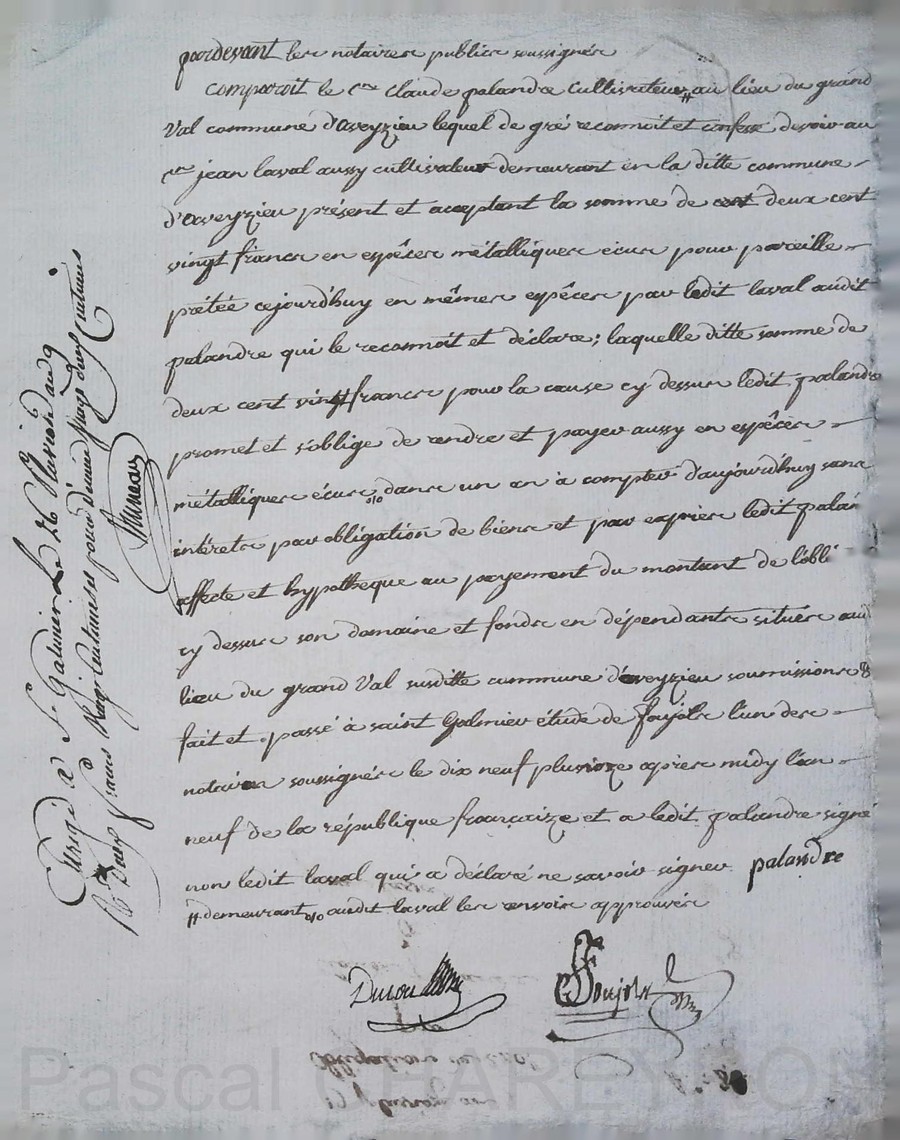 pardevant les notaires publics soussignés
comparoit le cen Claude palandre Cultivateur # au lieu du grand
Val commune d'aveyzieu lequel de gré reconnoit et confesse devoir au
cen jean laval aussy cultivateur demeurant en la ditte commune
d'aveyzieu présent et acceptant la somme de deux cent
vingt francs en espêces métalliques écus pour pareille
prétée cejourd'huy en mêmes espêces par ledit laval audit
palandre qui le reconnoit et déclare; laquelle ditte somme de
deux cent vingt francs pour la cause cy dessus ledit palandre
promet et s'oblige de rendre et payer aussy en espêces
métalliques écus o/o dans un an à compter d'aujourd'huy sans
intérets par obligation de biens et par exprès ledit palan
affecte et hypotheque au payement du montant de l'obli
cy dessus son domaine et fonds en dépendants situés aud
lieu du grand Val susditte commune d'aveyzieu soumissions &
fait et passé à saint Galmier étude de foujols l'un des
notaires soussignés le dix neuf pluviose après midy l'an
neuf de la république françaize et a ledit palandre signé
non ledit laval qui a déclaré ne savoir signer palandre
# demeurant o/o audit laval les renvois approuvés
Foujols
Enrégé à St Galmier Le 26 Pluviose an 9
R. Deux francs vingt Centimes pour dixieme vingt deux Centimes
Pascal CHAREYRON